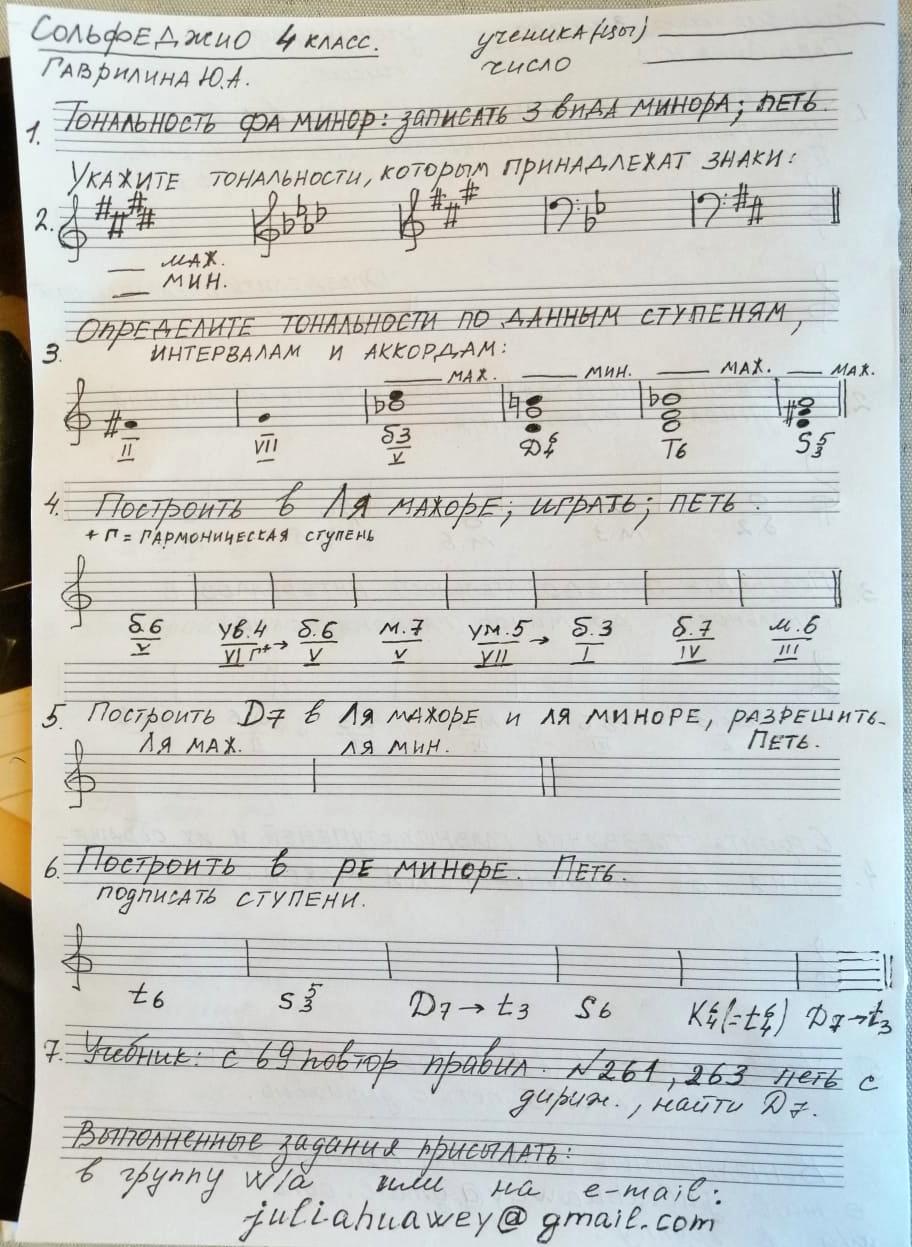 Сольфеджио 4 класс. ученика(цы)
Гаврилина Ю.А. число
1. Тональность фа минор: записать 3 вида минора; петь.
Укажите тональности, которым принадлежат знаки:
2.
маж.
мин.
Определите тональности по данным ступеням,
3. интервалам и аккордам:
маж. мин. маж. маж.
II VII б3/V D6/4 T6 S5/3
4. Построить в Ля мажоре; играть; петь.
+ г = гармоническая ступень
б.6/V ув.4/VI г+ → б.6/V м.7/V ум.5/VII → б.3/I б.7/IV м.6/III
5. Построить D7 в Ля мажоре и ля миноре, разрешить.
Ля маж. ля мин. Петь.
6. Построить в ре миноре. Петь.
подписать ступени.
t6 S5/3 D7 → t3 S6 K6/4(=t6/4) D7→t3
7. Учебник: с 69 повтор правил. №261, 263 петь с
дириж., найти D7.
Выполненные задания присылать:
в группу w/a или на e-mail:
juliahuawey@gmail.com